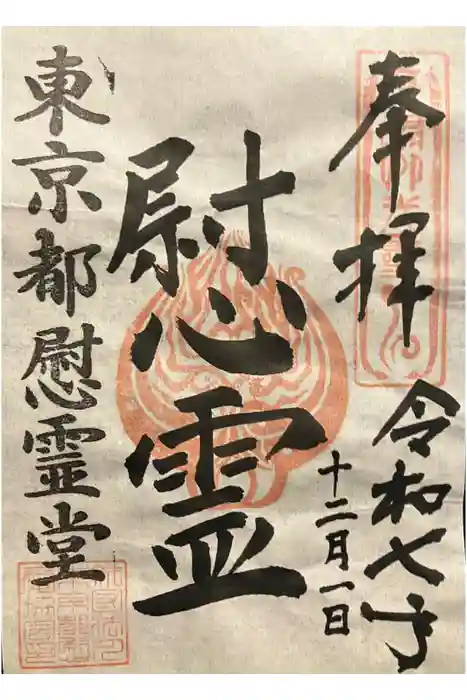 奉拝
令和七年
十二月一日
慰霊
東京都慰霊堂